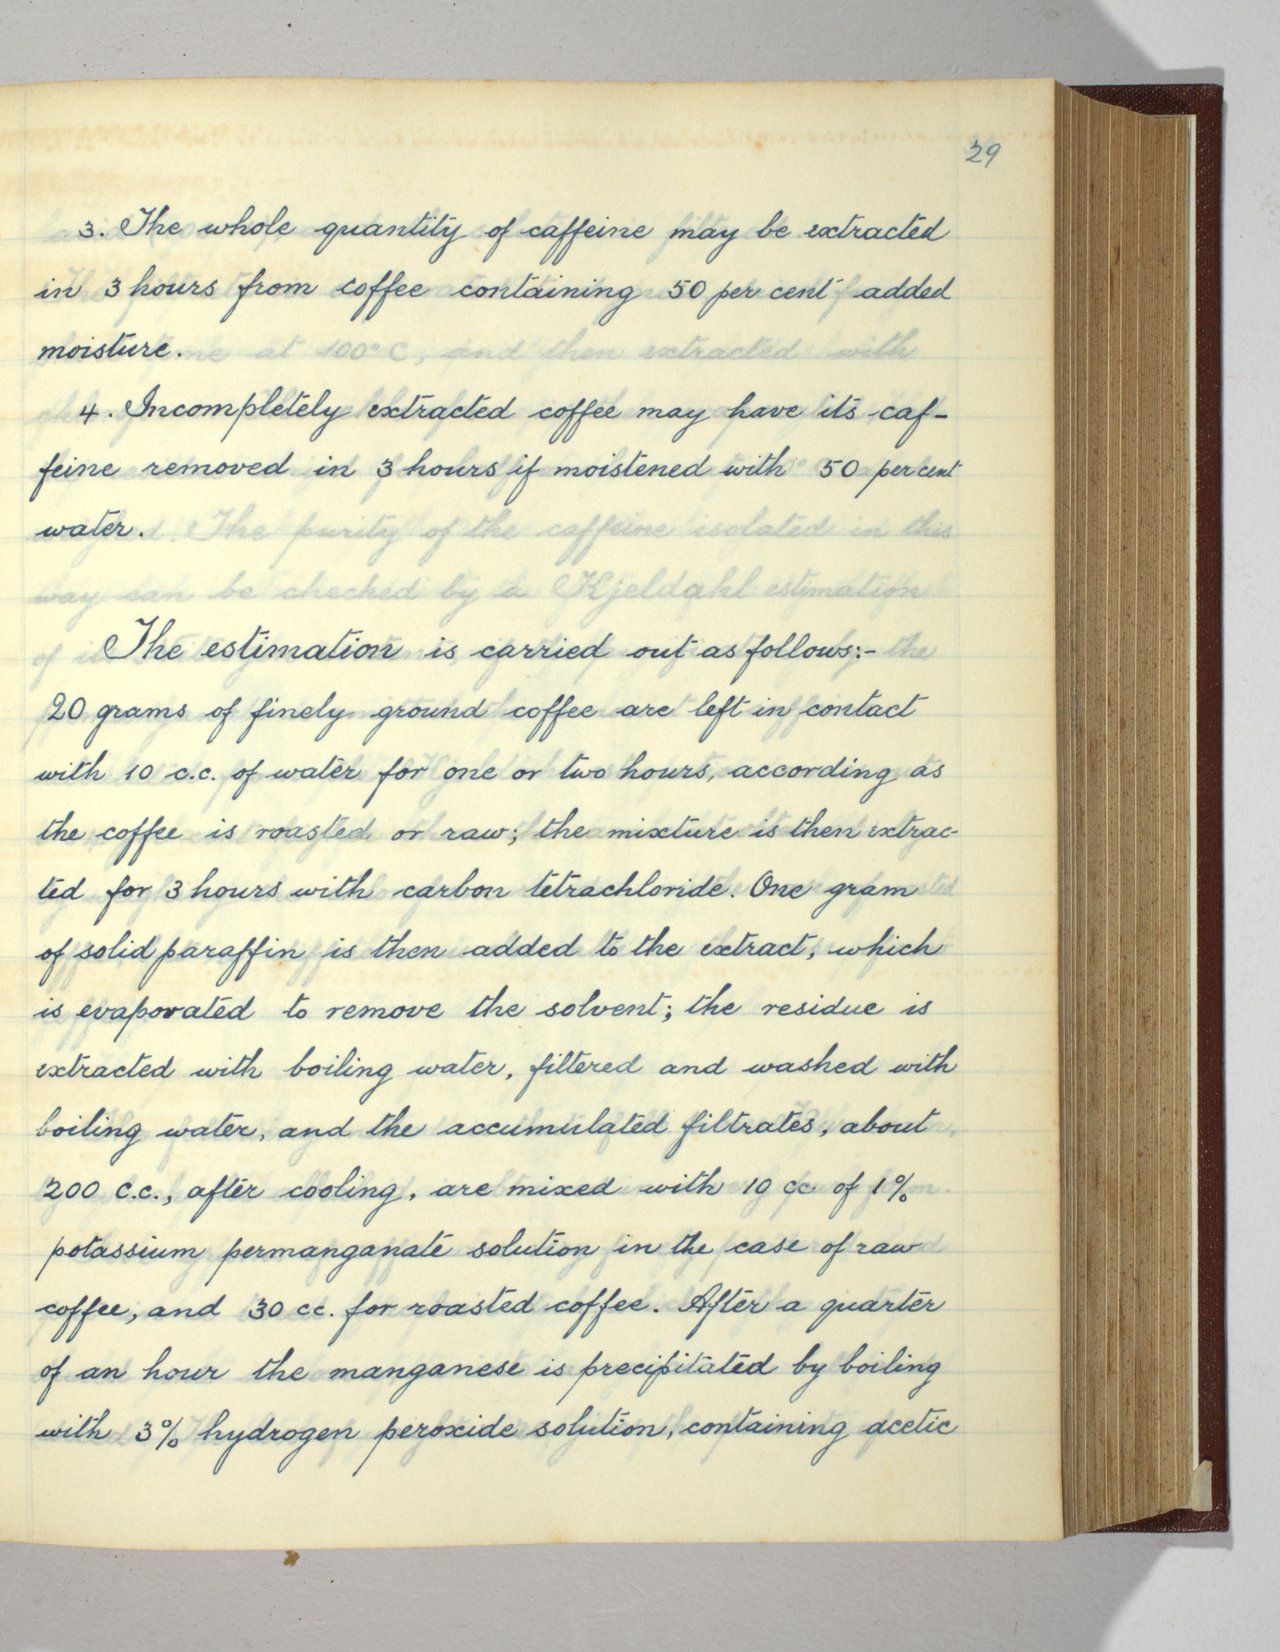 29
3. The whole quantity of caffeine may be extracted
in 3 hours from coffee containing 50 per cent added
moisture.
4. Incompletely extracted coffee may have its caf-
feine removed in 3 hours if moistened with 50 per cent
water.
The estimation is carried out as follows:-
20 grams of finely ground coffee are left in contact
with 10 c.c. of water for one or two hours, according as
the coffee is roasted or raw; the mixture is then extrac-
ted for 3 hours with carbon tetrachloride. One gram
of solid paraffin is then added to the extract, which
is evaporated to remove the solvent; the residue is
extracted with boiling water, filtered and washed with
boiling water, and the accumulated filtrates, about
200 c.c., after cooling, are mixed with 10 cc of 1%
potassium permanganate solution in the case of raw
coffee, and 30 cc. for roasted coffee. After a quarter
of an hour the manganese is precipitated by boiling
with 3% hydrogen peroxide solution, containing acetic